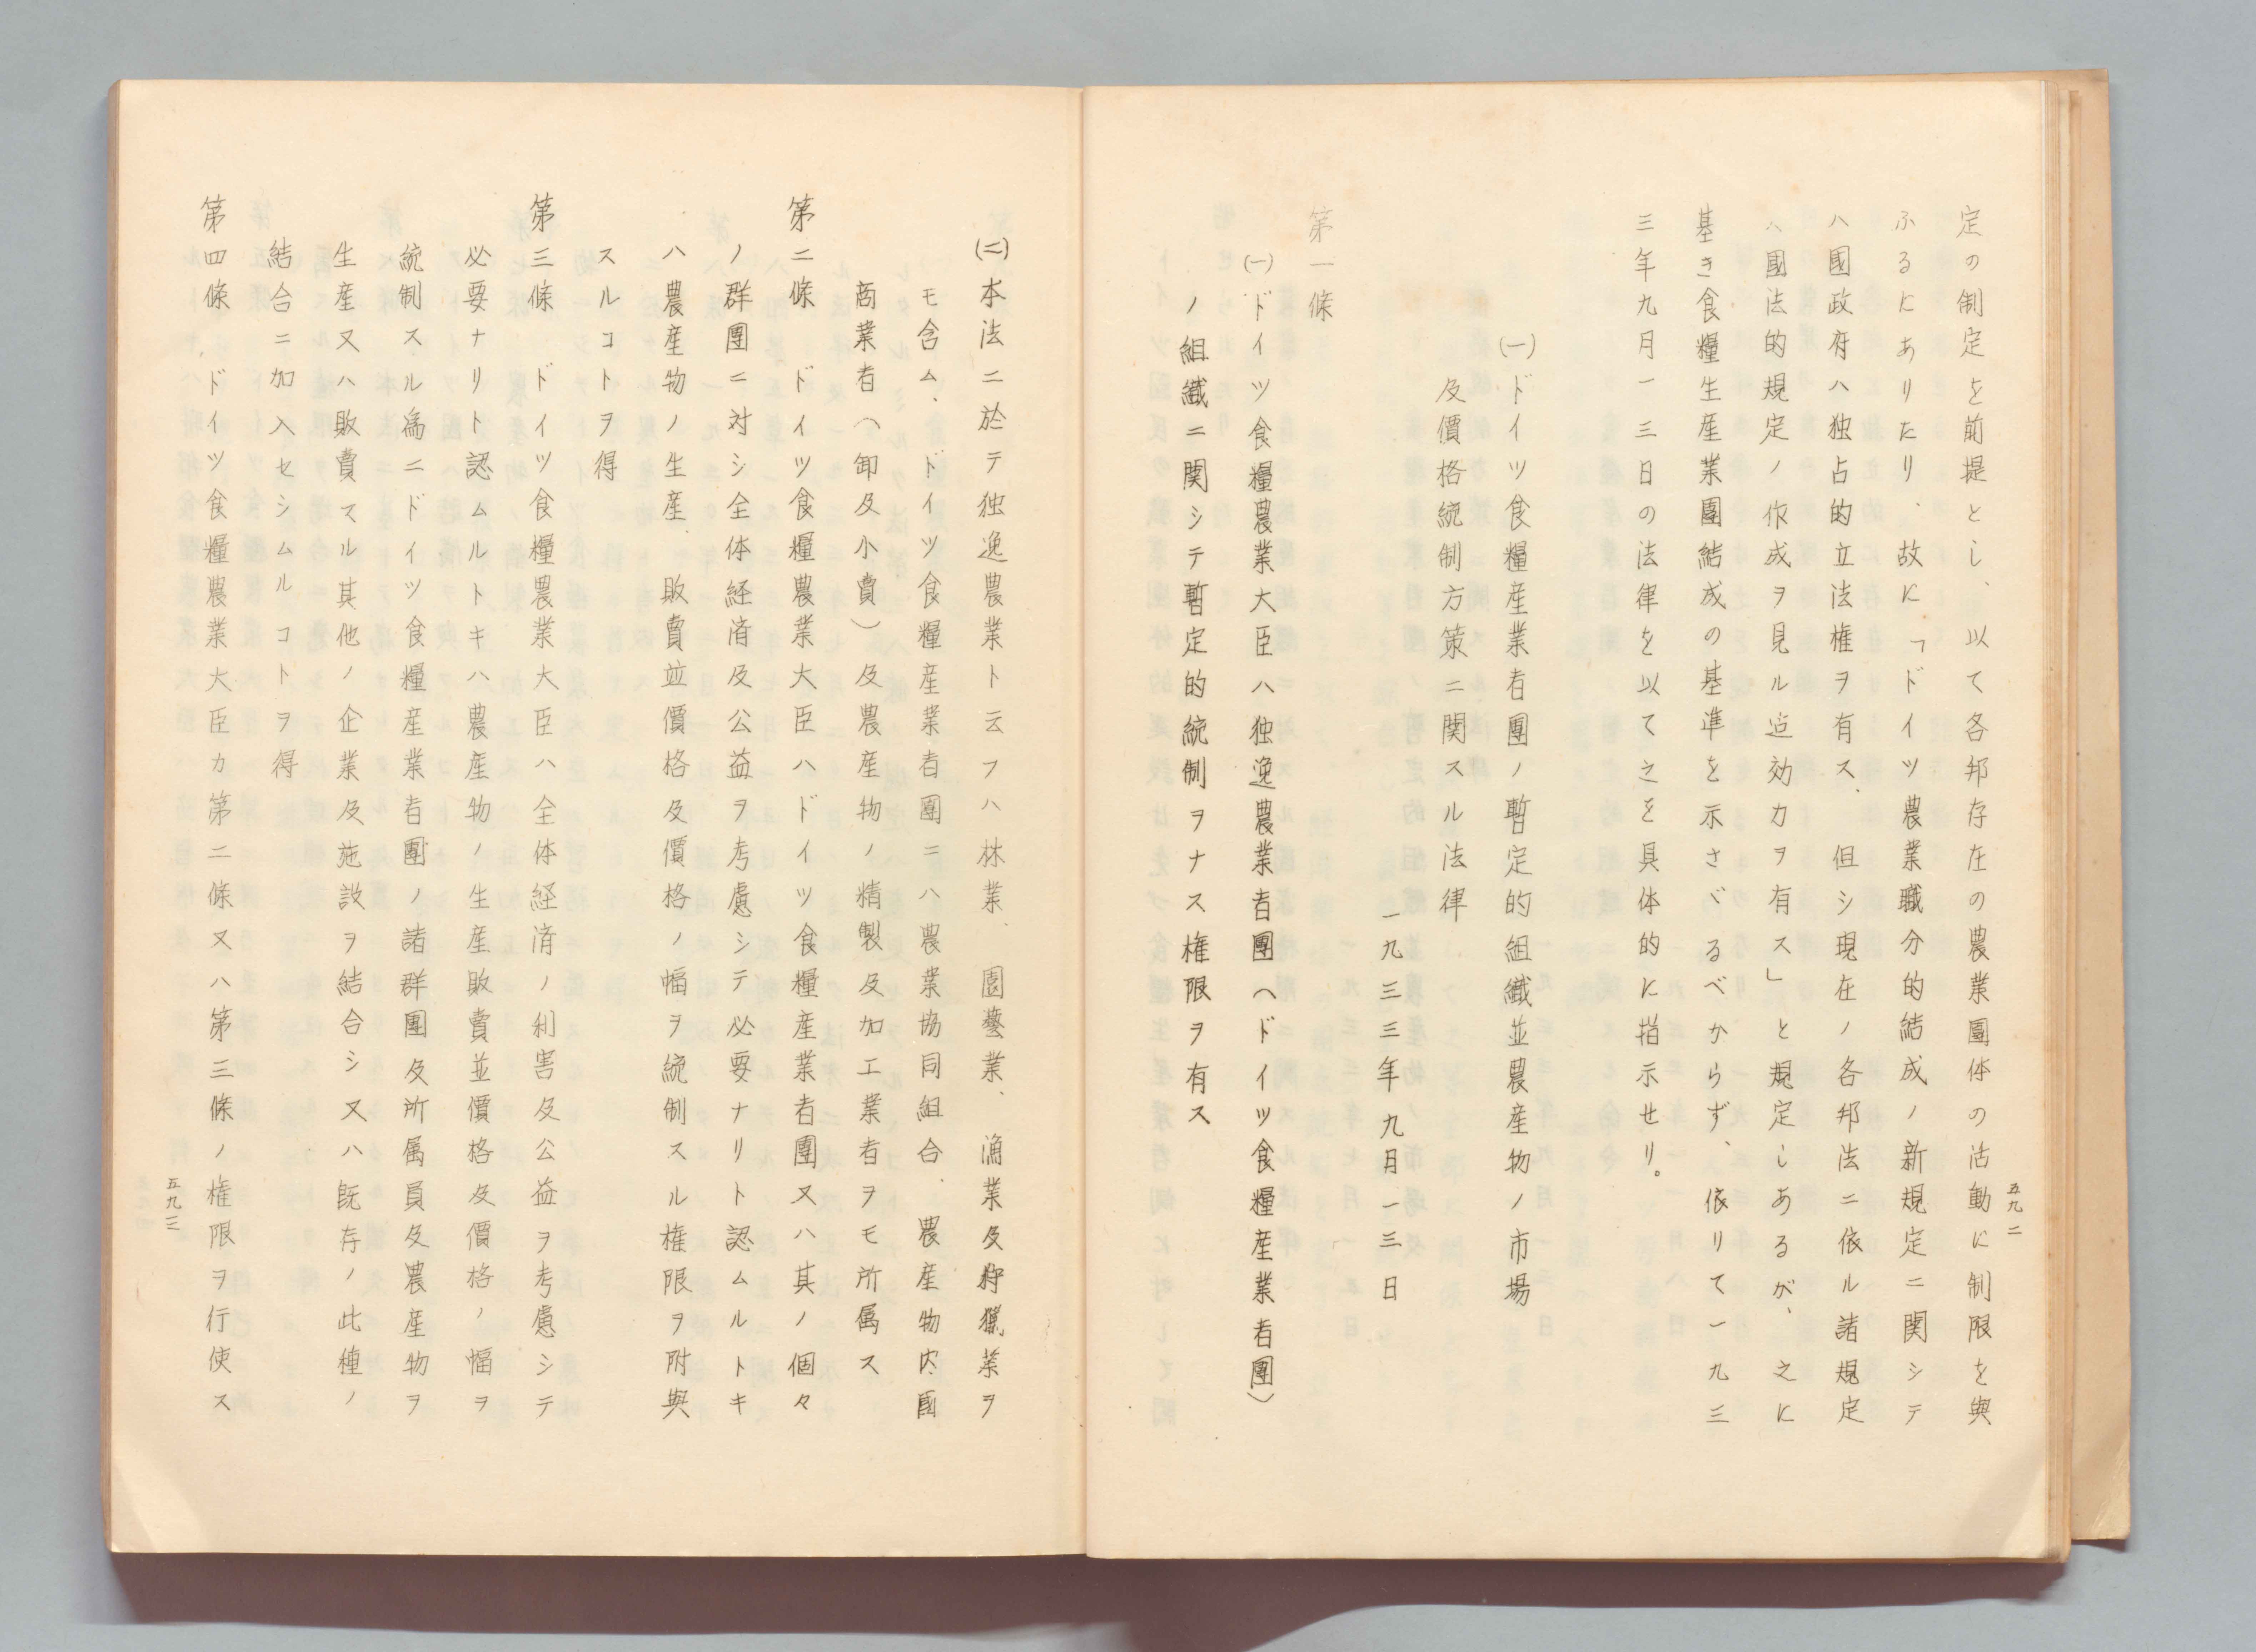 定の制定を前提とし、以て各邦存在の農業團体の活動に制限を與
ふるにありたり、故に「ドイツ農業職分的結成ノ新規定ニ関シテ
ハ國政府ハ独占的立法権ヲ有ス、但シ現在ノ各邦法ニ依ル諸規定
ハ國法的規定ノ作成ヲ見ル迠効力ヲ有ス」と規定しあるが、之に
基き食糧生産業團結成の基準を示さゞるべからず、依りて一九三
三年九月一三日の法律を以て之を具体的に指示せり。
(一)ドイツ食糧産業者團ノ暫定的組織並農産物ノ市場
及價格統制方策ニ関スル法律
一九三三年九月一三日
第一條
(一)ドイツ食糧農業大臣ハ独逸農業者團(ドイツ食糧産業者團)
ノ組織ニ関シテ暫定的統制ヲナス権限ヲ有ス
五九二
(二)本法ニ於テ独逸農業ト云フハ林業、園藝業、漁業及狩獵業ヲ
モ含ム、ドイツ食糧産業者團ニハ農業協同組合、農産物内國
商業者(卸及小賣)及農産物ノ精製及加工業者ヲモ所属ス
第二條　ドイツ食糧農業大臣ハドイツ食糧産業者團又ハ其ノ個々
ノ群團ニ対シ全体経済及公益ヲ考慮シテ必要ナリト認ムルトキ
ハ農産物ノ生産、販賣並價格及價格ノ幅ヲ統制スル権限ヲ附與
スルコトヲ得
第三條　ドイツ食糧農業大臣ハ全体経済ノ利害及公益ヲ考慮シテ
必要ナリト認ムルトキハ農産物ノ生産販賣並價格及價格ノ幅ヲ
統制スル為ニドイツ食糧産業者團ノ諸群團及所属員及農産物ヲ
生産又ハ販賣スル其他ノ企業及施設ヲ結合シ又ハ既存ノ此種ノ
結合ニ加入セシムルコトヲ得
第四條　ドイツ食糧農業大臣カ第二條又ハ第三條ノ権限ヲ行使ス
五九三